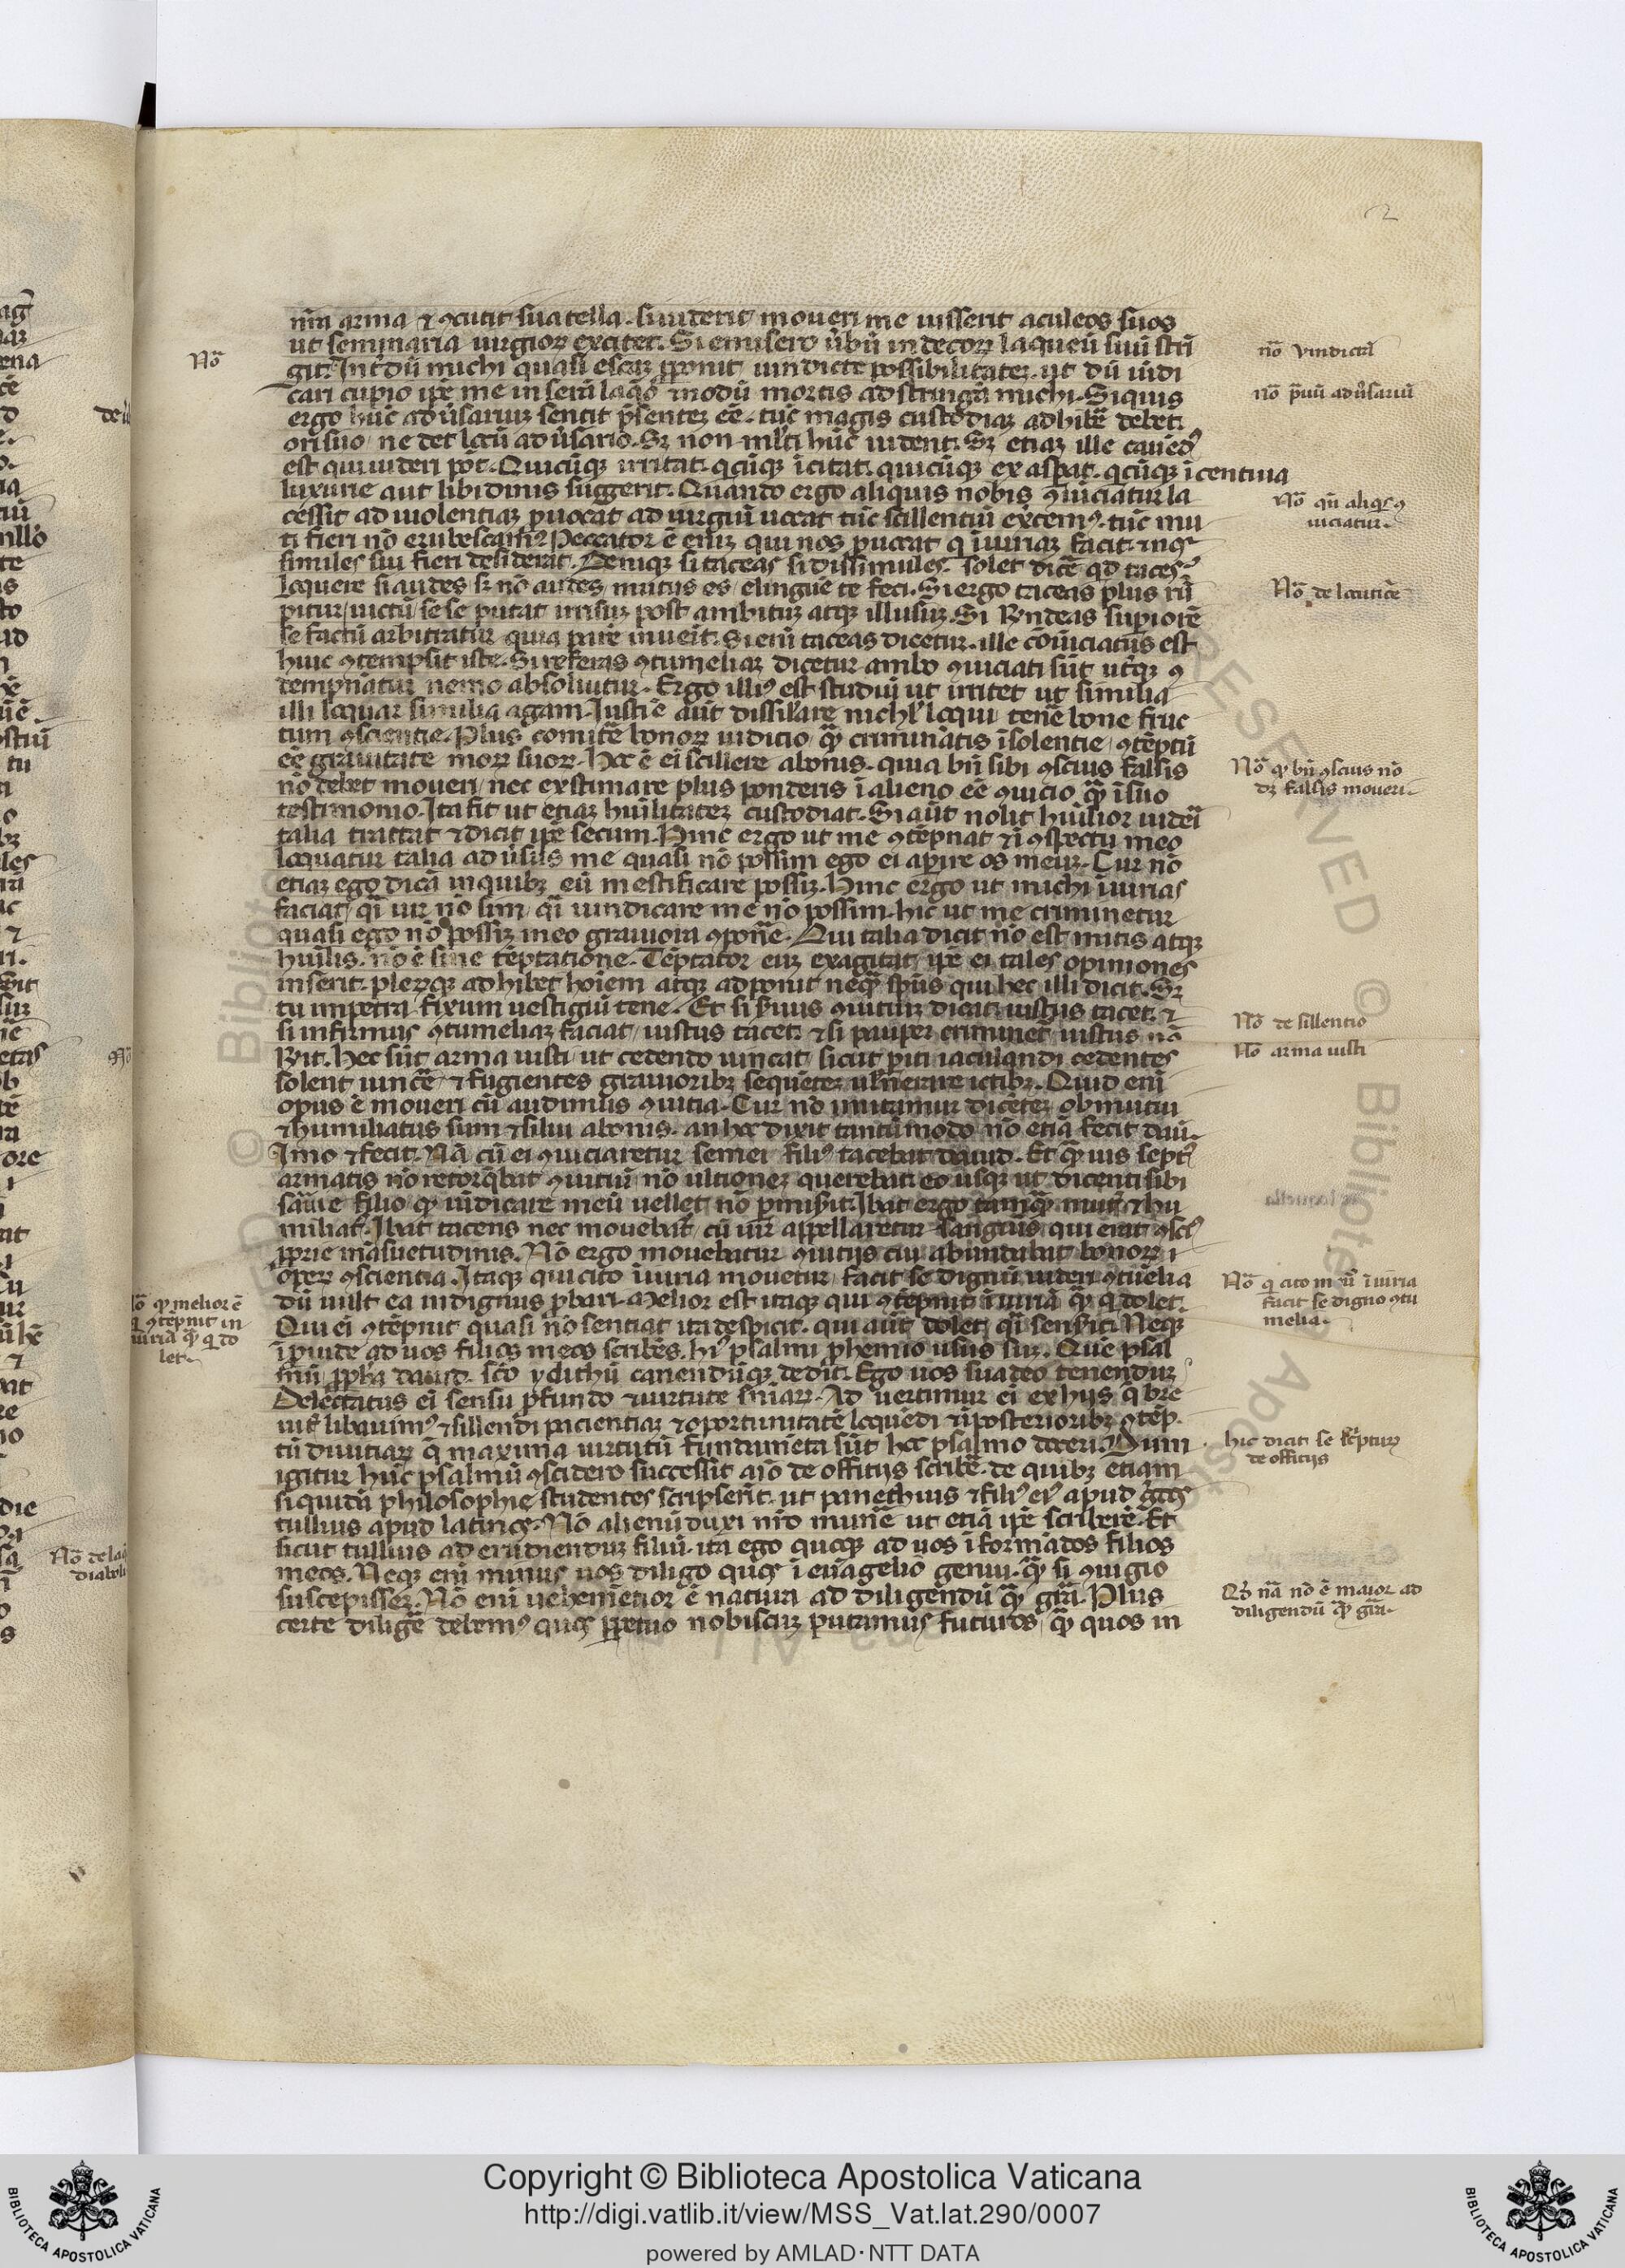 2
nr̄m arma ⁊ ꝯcutit sua tella. si uiderit moueri me iusserit aculeos suos
ut seminaria iurgior̄ excitet. Si emisero ūbū indecor̄ laqueū suū strī
git. Int̄dū michi quasi escaꝫ ꝓponit uindicte possibilitateꝫ. ut dū uīdi
cari cupio ip̄e me inserā laq̄o ⁊ nodū mortis adstringā michi. Siquis
ergo hūc adūsariuꝫ sentit p̄senteꝫ eē. tūc magis custodiaꝫ adhibē debet
ori suo ne det locū adūsario. Sꝫ non ml̄ti hūc uident. Sꝫ etiaꝫ ille cauēdꝰ
est qui uideri pōt. Quicūqꝫ irritat. qcūqꝫ īcitat. quicūqꝫ exaspat. qcūqꝫ īcentiua
luxurie aut libidinis suggerit. Quando ergo aliquis nobis ꝯuiciatur la
cessit ad uiolentiaꝫ ꝓuocat ad iurgiū uocat tūc scillentiū excemꝰ. tūc mu
ti fieri nō erubescamꝰ. Peccator ē eniꝫ qui nos ꝓuocat q iniuriaꝫ facit. ⁊ nos
similes sui fieri desiderat. Deniqꝫ si taceas si dissimules. solet dicē qd taces?
Loquere si audes sꝫ nō audes, mutus es, elinguē te feci. Si ergo taceas plus rū
pitur, uictū sese putat irrisuꝫ post ambituꝫ atqꝫ illusuꝫ. Si Rn̄deas supiorē
se factū arbitratur quia parē inueīt. Si enī taceas dicetur. ille conuiciatus est
huic ꝯtempsit iste. Si referas ꝯtumeliaꝫ dicetur ambo ꝯuiciati sūt ut̄qꝫ ꝯ
tempnātur nemo absoluitur. Ergo illiꝰ est studiū ut irritet ut similia
illi loquar similia agam. Iusti ē aūt dissil̄are nichl̄ loqui tenē bone fruc
tum ꝯscientie. Plus comitē bonor̄ iudicio qꝫ criminātis īsolentie, ꝯtēptū
eē grauitate mor̄ suor̄. Hoc ē eī scillere a bonis. quia bn̄ sibi ꝯscius falsis
nō debet moueri, nec exstimare plus ponderis ī alieno eē ꝯuicio qꝫ ī suo
testimonio. Ita fit ut etiaꝫ humilitateꝫ custodiat. Si aūt nolit humilior uideri
talia tractat ⁊ dicit ip̄e secum. Hinc ergo ut me ꝯtēpnat ⁊ ī ꝯspectu meo
loquatur talia adūsus me quasi nō possim ego ei apire os meuꝫ. Cur nō
etiaꝫ ego dicā in quibꝫ eū mestificare possiꝫ. Hinc ergo ut michi iniurias
faciat, qī uir nō sim, qī uindicare me nō possim. hic ut me criminetur
quasi ego nō possiꝫ in eo grauiora ꝯponē. Qui talia dicit nō est mitis atqꝫ
humilis. nō ē sine tēptatione. Tēptator euꝫ exagitat, ip̄e ei tales opiniones
inserit. pleꝝqꝫ adhibet hoīem atqꝫ adponit neqꝫ sp̄us qui hec illi dicit. Sꝫ
tu inpetra fixum uestigiū tene. Et si ẜuus ꝯuitiuꝫ dicat, iustus tacet. ⁊
si infirmus ꝯtumeliaꝫ faciat, iustus tacet. ⁊ si pauper criminet iustus nō
Rn̄t. Hec sūt arma iusti, ut cedendo uincat, sicut periti iaculandi cedentes
solent uincē ⁊ fugientes grauioribꝫ sequēteꝫ uulnerare ictibꝫ. Quid enī
opus ē moueri cū audimus ꝯuitia. Cur nō imitamur dicēteꝫ obmutui
⁊ humiliatus sum ⁊ silui a bonis. an hoc dixit tantūmodo nō etiā fecit dauid.
Imo ⁊ fecit. Nā cū ei ꝯuiciaretur semei filiꝰ tacebat dauid. Et qꝫuis septꝰ
armatis nō retorq̄bat ꝯuitiū nō ultioneꝫ querebat. eousqꝫ ut dicenti sibi
saruie filio qꝫ uīdicare meū uellet, nō pmisit. Ibat ergo tamqꝫ mutꝰ ⁊ hu
miliatꝰ. Ibat tacens nec mouebat cū uir appellaretur sanguis, qui erat ꝯsciꝰ
ꝓprie māsuetudinis. Nō ergo mouebatur ꝯuitijs cui abundabat bonor̄
oper̄ ꝯscientia. Itaqꝫ qui cito iniuria mouetur, facit se dignū uideri ꝯtūelia
dū uult ea indignus ꝓbari. Melior est itaqꝫ qui ꝯtēpnit iniuriā qꝫ q dolet.
Qui eī ꝯtēpnit quasi nō sentiat ita despicit. qui aūt dolet, qī senserit. Neqꝫ
īprouide ad uos filios meos scribēs. hꝰ psalmi phemio usus suꝫ. Quē psal
mū ꝓpha dauid scō ydithū canendūqꝫ dedit. Ego uos suadeo tenenduꝫ
Delectatus eī sensu profundo ⁊ uirtute sniar̄. Aduertimur eī ex hijs q̄ bre
uiter libauimꝰ ⁊ sillendi pacientiaꝫ ⁊ oportunitatē loquēdi ⁊ ī posterioribꝫ ꝯtēp
tū diuitiar̄ q̄ maxima uirtutū fundamēta sūt hoc psalmo doceri. Dum
igitur hūc psalmū ꝯsidero successit aīo de offitijs scribē. de quibꝫ etiam
si quidā philosophie studentes scripserīt. ut panethius ⁊ filiꝰ eiꝰ apud grecos
tullius apud latinos. Nō alienū duxi nrō munē ut etiā ip̄e scriberē. Et
sicut tullius ad erudienduꝫ filiū. ita ego quoqꝫ ad uos īformādos filios
meos. Neqꝫ enī minus uos diligo quos ī euāgelio genui. qꝫ si ꝯiugio
suscepisseꝫ. Nō enī uehemētior ē natura ad diligendū qꝫ grā. Plus
certe diligē debemꝰ quos ꝑpetuo nobiscuꝫ putamus futuros, qꝫ quos in
Nō
nō vindictā
nō p̄uū adūsariū
Nō qn̄ aliqꝰ ꝯ
uiciatur.
Nō de locutiōe
Nō qꝫ bn̄ ꝯscius nō
dꝫ falsis moueri.
Nō de sillentio
Nō arma iusti
Nō q cito mouet̄ īiuria
facit se digno ꝯtu
melia.
Nō qꝫ melior ē
q ꝯtēpnit in
iuriā qꝫ q do
let.
hic dicit se scripturꝫ
de offitijs
Qꝫ nā nō ē maior ad
diligendū qꝫ grā.
Copyright © Biblioteca Apostolica Vaticana
http://digi.vatlib.it/view/MSS_Vat.lat.290/0007
powered by AMLAD·NTT DATA
BIBLIOTECA APOSTOLICA VATICANA
BIBLIOTECA APOSTOLICA VATICANA